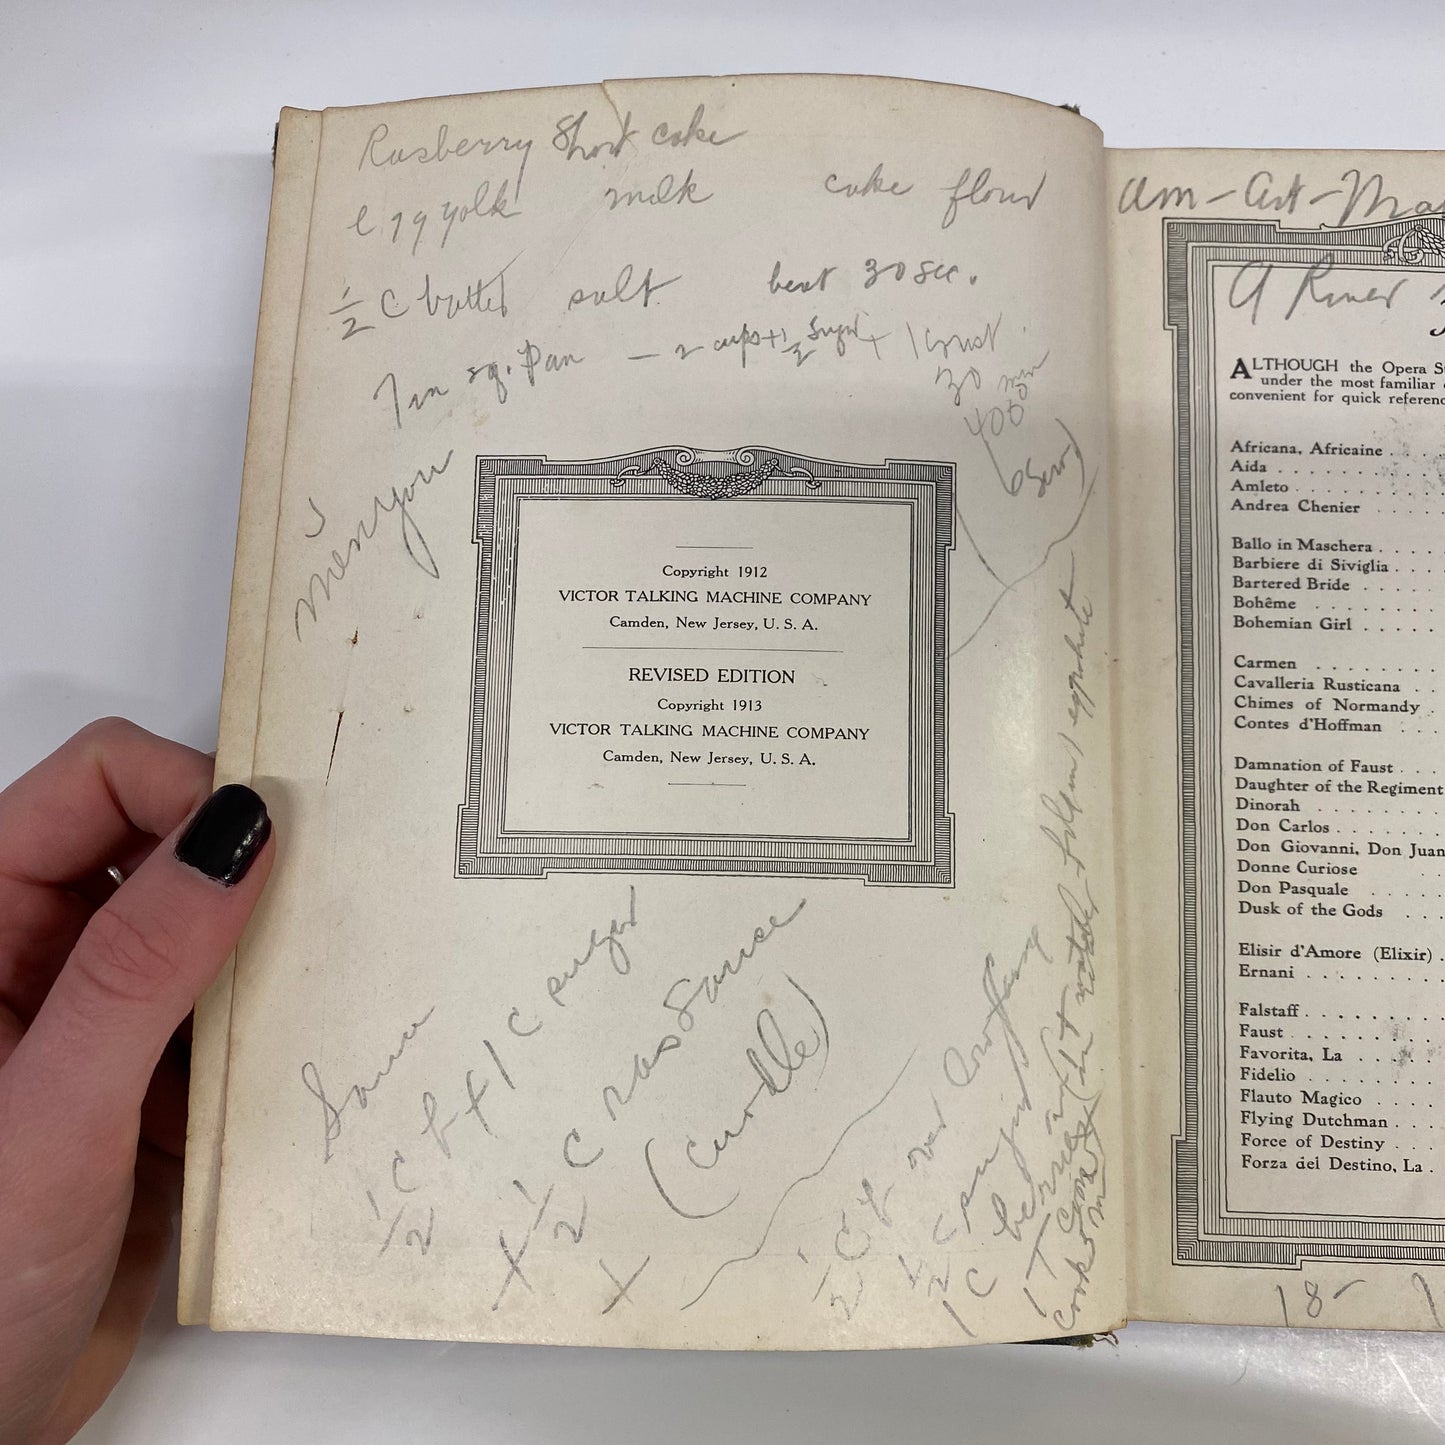 Rasberry Short cake
egg yolk milk cake flour
1/2 C butter salt beat 30 sec.
7 in sq. Pan — 2 cups + 1/2 Sugar + 1 Crust.
30 min
400°
(6 Serv)
Menyou
Copyright 1912
VICTOR TALKING MACHINE COMPANY
Camden, New Jersey, U. S. A.
REVISED EDITION
Copyright 1913
VICTOR TALKING MACHINE COMPANY
Camden, New Jersey, U. S. A.
Sauce
1/2 C b + 1 C sugar
+ 1/2 C ras Sauce
+ (Curdle)
1/2 C
1/2 C sugar
1 C
1 T
cook
am-art-Ma
A River
ALTHOUGH the Opera S
under the most familiar
convenient for quick referenc
Africana, Africaine . . .
Aida . . . . . . . .
Amleto . . . . . . .
Andrea Chenier . . . .
Ballo in Maschera . . . .
Barbiere di Siviglia . . . .
Bartered Bride . . . .
Bohême . . . . . .
Bohemian Girl . . . . .
Carmen . . . . . .
Cavalleria Rusticana . .
Chimes of Normandy .
Contes d'Hoffman . . .
Damnation of Faust . . .
Daughter of the Regiment
Dinorah . . . . . .
Don Carlos . . . . . .
Don Giovanni, Don Juan
Donne Curiose . .
Don Pasquale . . . .
Dusk of the Gods . . .
Elisir d'Amore (Elixir) .
Ernani . . . . . . .
Falstaff . . . . . . .
Faust . . . . . . .
Favorita, La . . . .
Fidelio . . . . . .
Flauto Magico . . . .
Flying Dutchman . . .
Force of Destiny . . .
Forza del Destino, La .
18-